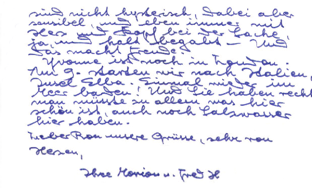 sind nicht hysterisch, dabei aber
sensibel, und eben immer mit
Herz und Kopf bei der Sache,
ja, und halt begabt – Und
das macht Freude!
Yvonne ist noch in London.
Am 9. starten wir nach Italien,
Insel Elba. Einmal wieder im
Meer baden! Und Sie haben recht
man müsste zu allem was hier
schön ist, auch noch Salzwasser
hier haben.
Lieber Ron unsere Grüsse, sehr von
Herzen,
Ihre Marion u. Fred H